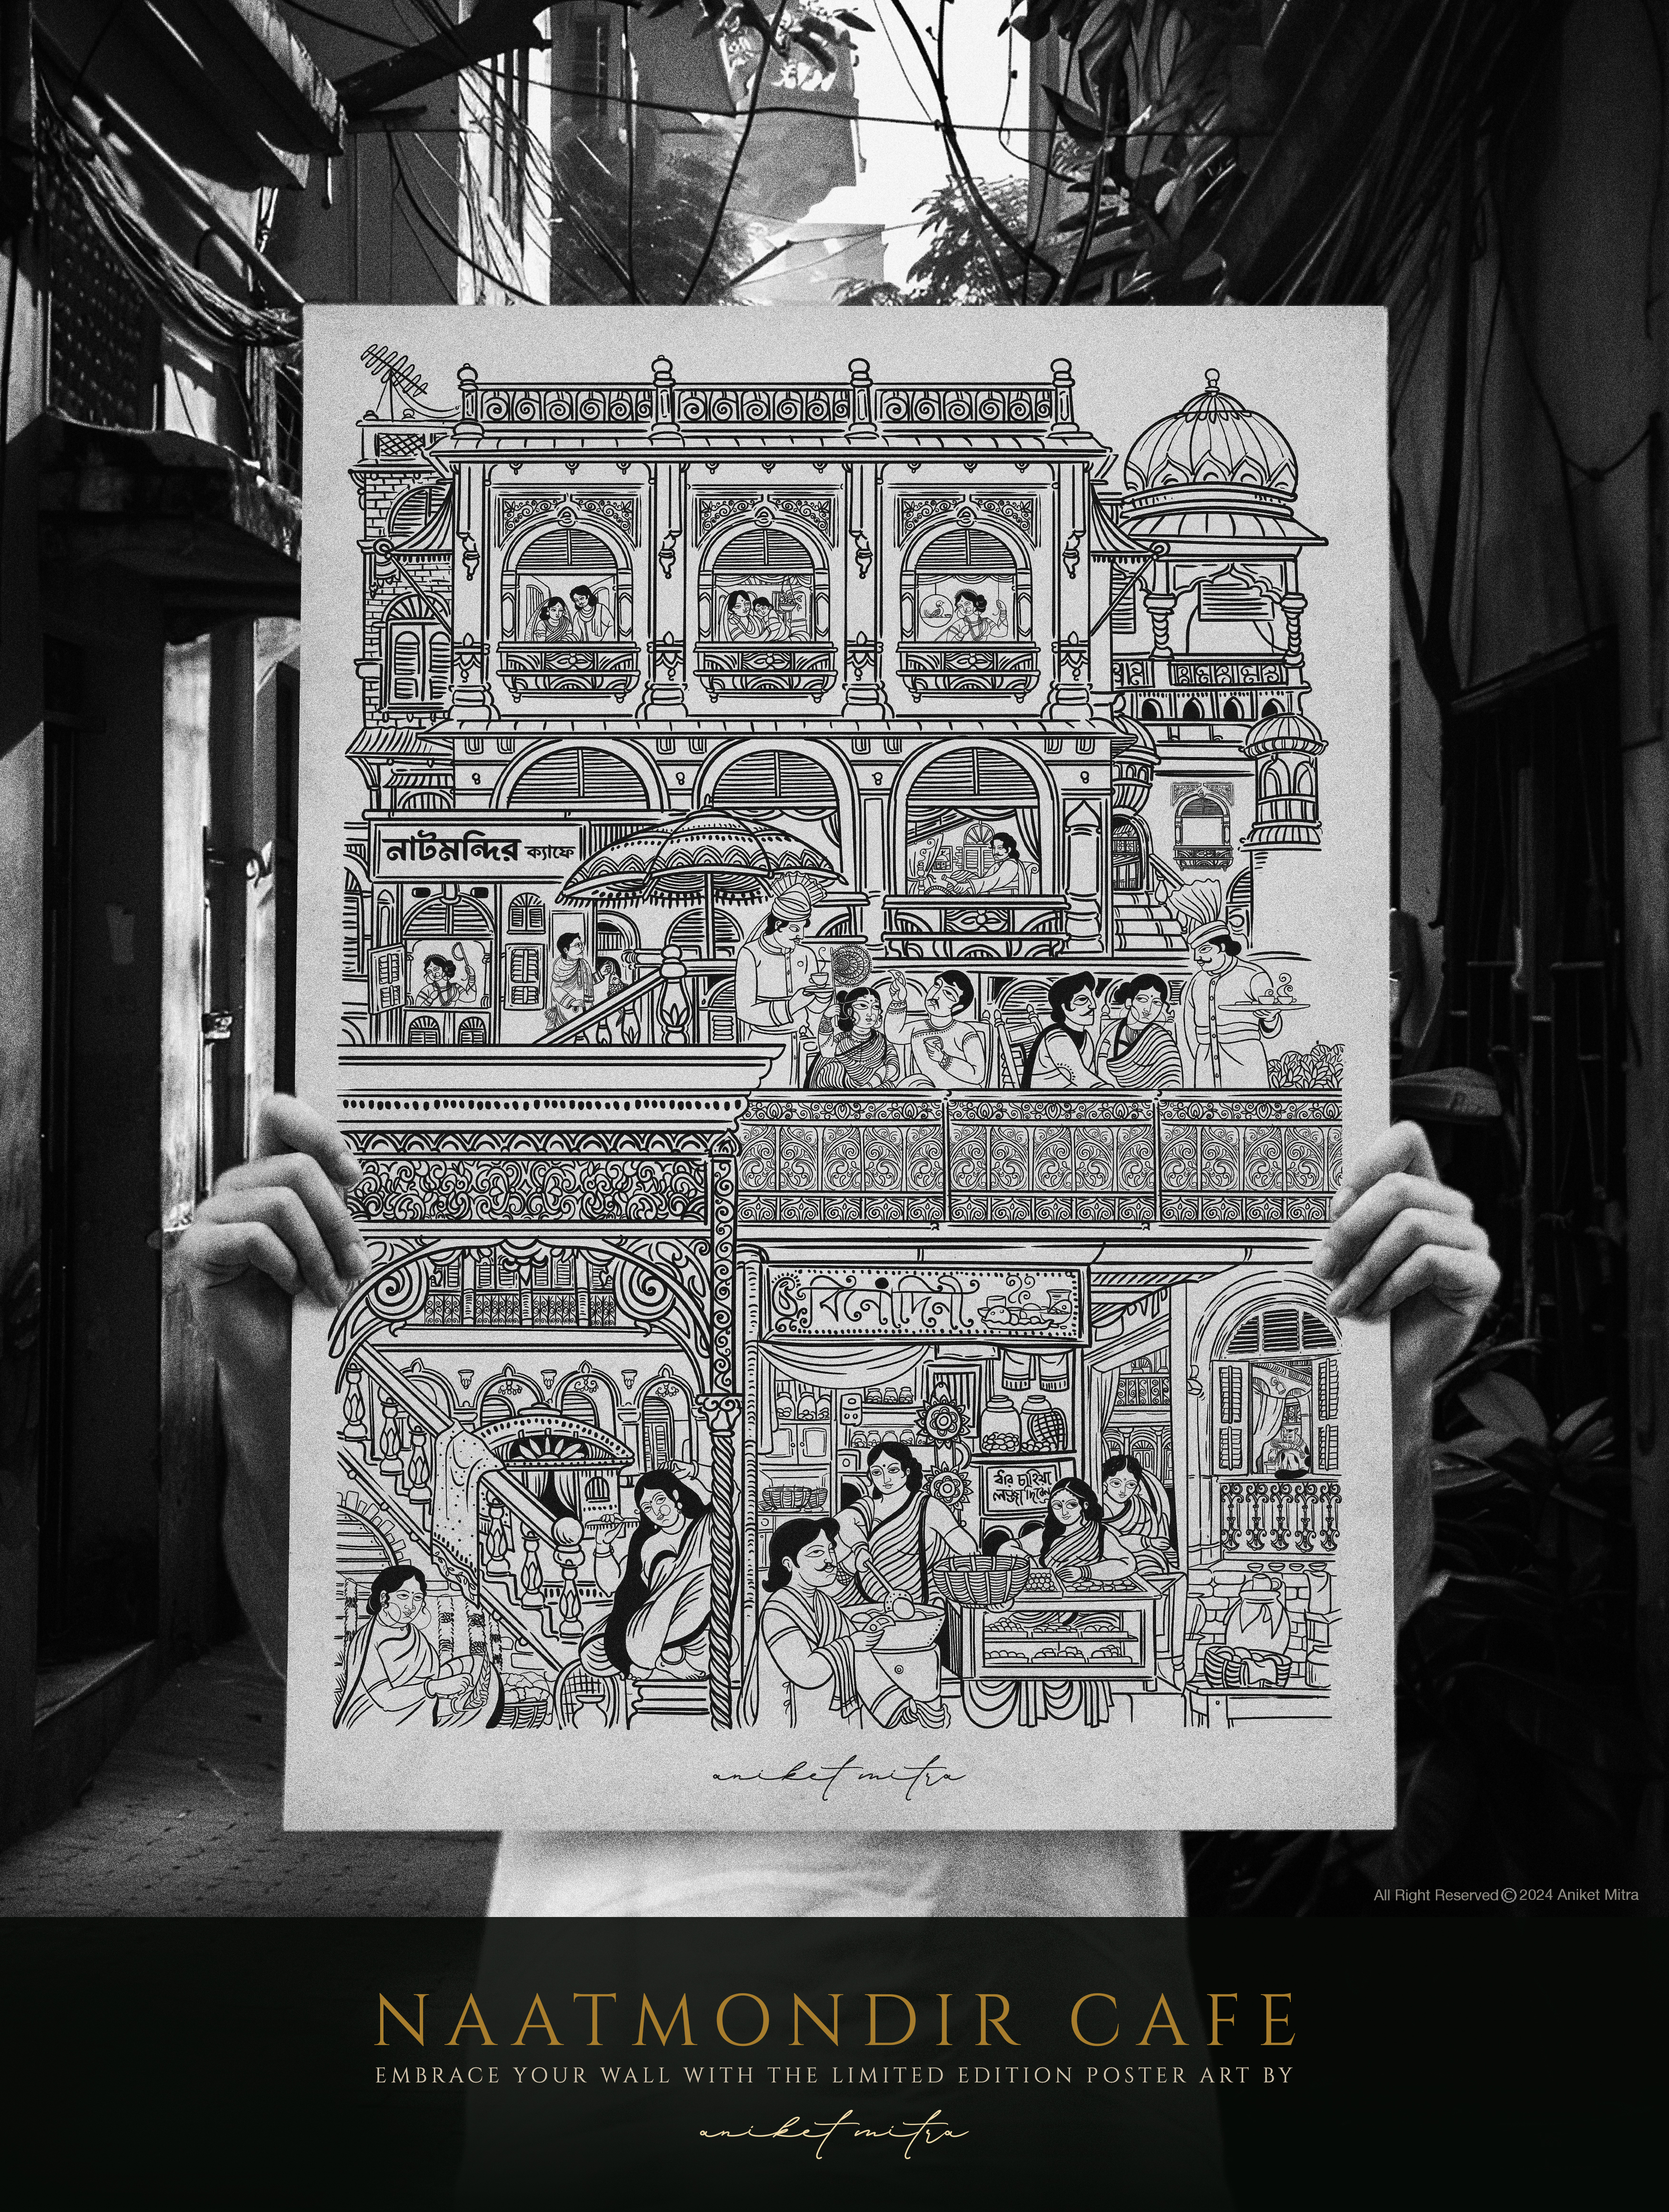 নাটমন্দির ক্যাফে
বিনোদিনী
ধার চাহিয়া
লজ্জা দিবেন
aniket mitra
All Right Reserved©2024 Aniket Mitra
NAATMONDIR CAFE
EMBRACE YOUR WALL WITH THE LIMITED EDITION POSTER ART BY
aniket mitra